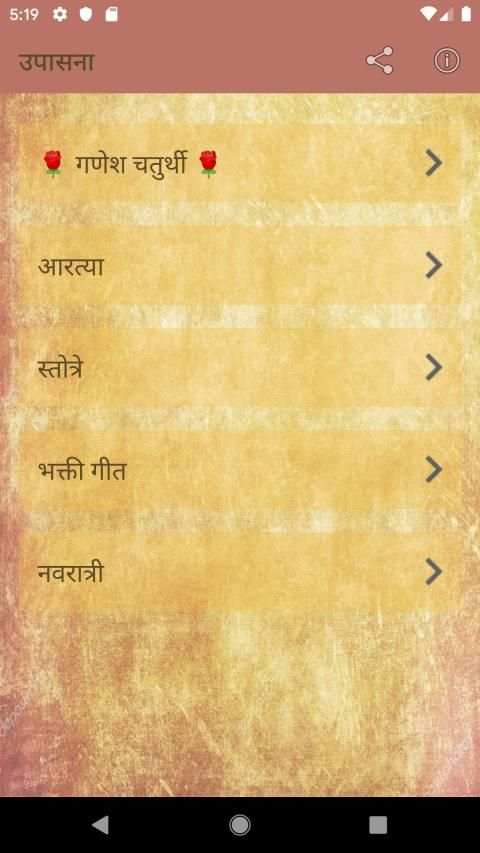 5:19
उपासना
🌹 गणेश चतुर्थी 🌹
आरत्या
स्तोत्रे
भक्ती गीत
नवरात्री